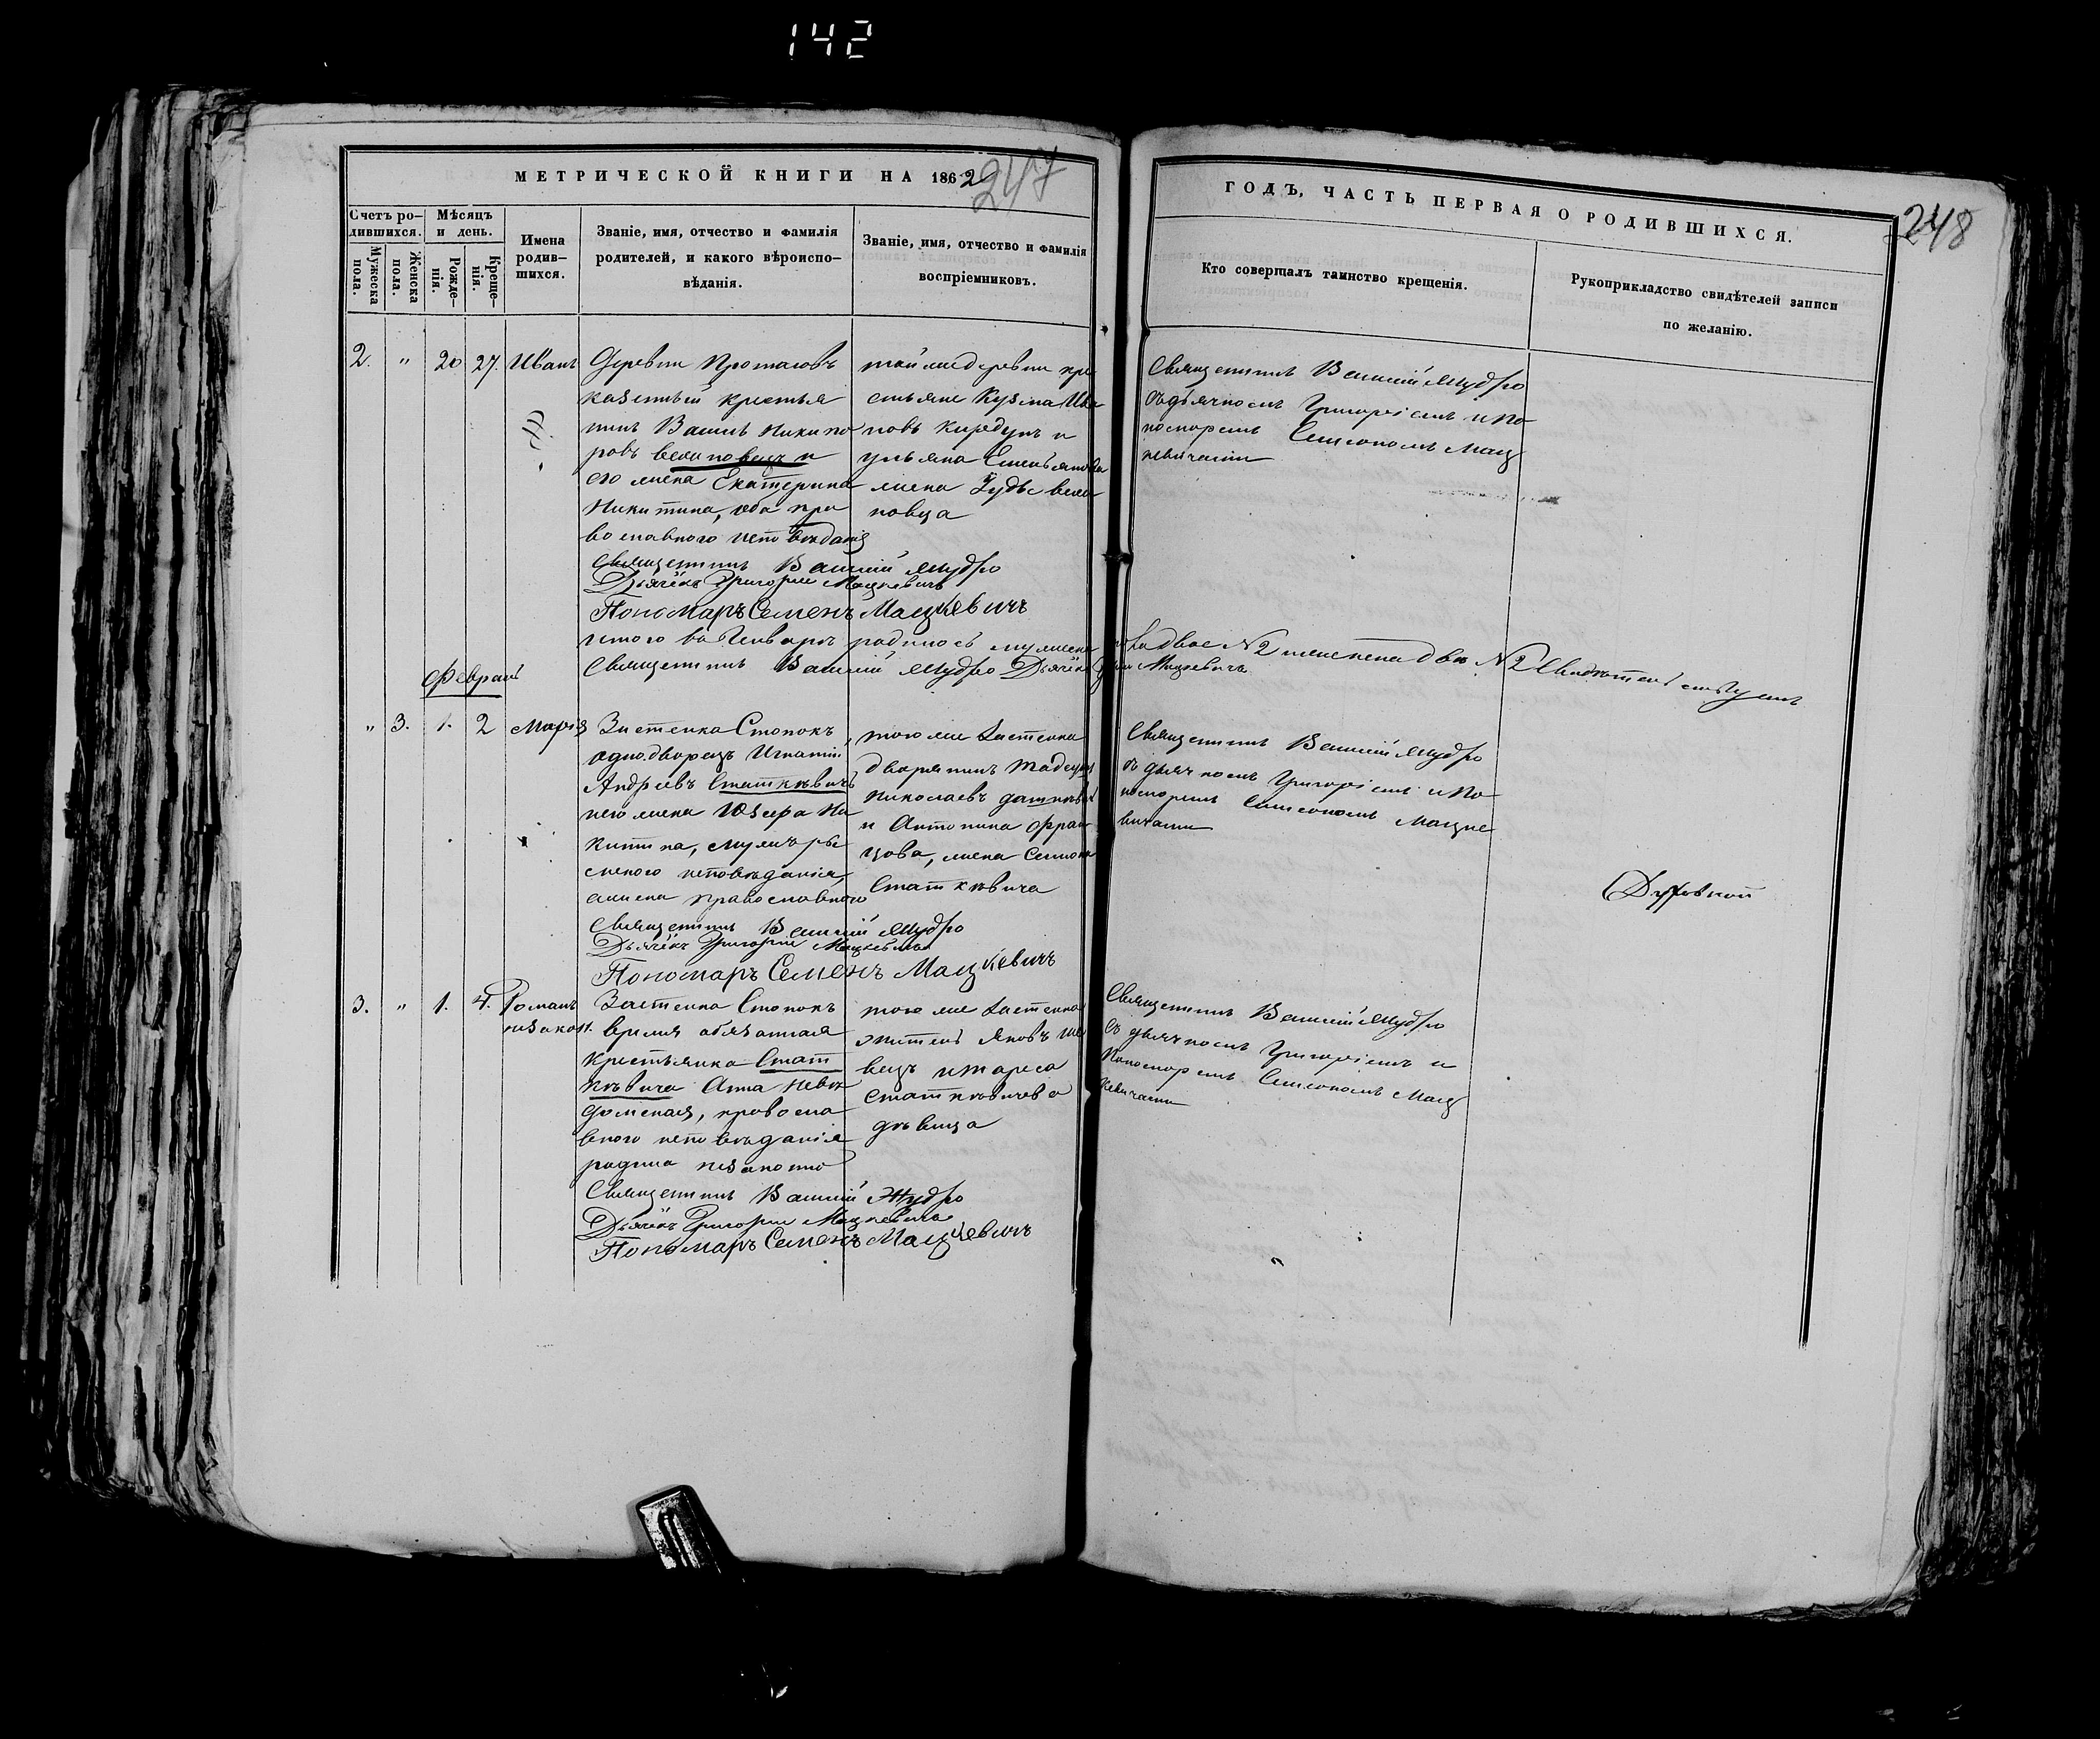 142
МЕТРИЧЕСКОЙ КНИГИ НА 1862
247
Счетъ ро-
дившихся.
Мужеска
пола.
Женска
пола.
Мѣсяцъ
и день.
Рожде-
нія.
Креще-
нія.
Имена
родив-
шихся.
Званіе, имя, отчество и фамилія
родителей, и какого вѣроиспо-
вѣданія.
Званіе, имя, отчество и фамилія
воспріемниковъ.
ГОДЪ, ЧАСТЬ ПЕРВАЯ О РОДИВШИХСЯ.
248
Кто совершалъ таинство крещенія.
Рукоприкладство свидѣтелей записи
по желанію.
2. " 20 27. Иванъ
Деревни Протасовъ
казенный крестья
нинъ Василь Никипо
ровъ и
его жена Екатерина
Никитина, оба пра
вославного исповѣданія
Священникъ Василій Жудро
Дьячёкъ Григорій Мацкевичъ
Пономаръ Семенъ Мацкевичъ
той же деревни кре
стьяне Кузма Ива
новъ и
Ульяна Емельянова
жена
Священникъ Василій Жудро
съ дьячкомъ Григоріемъ и По
номоремъ Симеономъ Мац
кевичами
итого въ Генварѣ родилось мужеска пола двое №2 женска двѣ №2
Священникъ Василій Жудро Дьячёкъ Мацкевичъ
Февраль
" 3. 1. 2 Марія
Застенка Стопокъ
однодворецъ Игнатій
Андреевъ Статкѣвичъ
и его жена Юзефа Ни
китина, мужъ рым
ского исповѣданія,
а жена православного
Священникъ Василій Жудро
Дьячёкъ Григорій Мацкевичъ
Пономаръ Семенъ Мацкевичъ
того же застенка
дворянинъ Тадеушъ
Николаевъ
и Антонина Фран
цова, жена Симона
Статкѣвича
Священникъ Василій Жудро
съ дьячкомъ Григоріемъ и По
номоремъ Симеономъ Мацке
вичами
3. " 1. 4. Романъ
незакон.
Застенка Стопокъ
время обязанная
крестьянка Стат
кѣвича Анна
православ
ного исповѣданія
родила незаконно
Священникъ Василій Жудро
Дьячёкъ Григорій Мацкевичъ
Пономаръ Семенъ Мацкевичъ
того же застенка
житель Яковъ
вецъ и Тареса
Статкѣвичева
дѣвица
Священникъ Василій Жудро
съ дьячкомъ Григоріемъ и
Пономоремъ Симеономъ Мац
кевичами